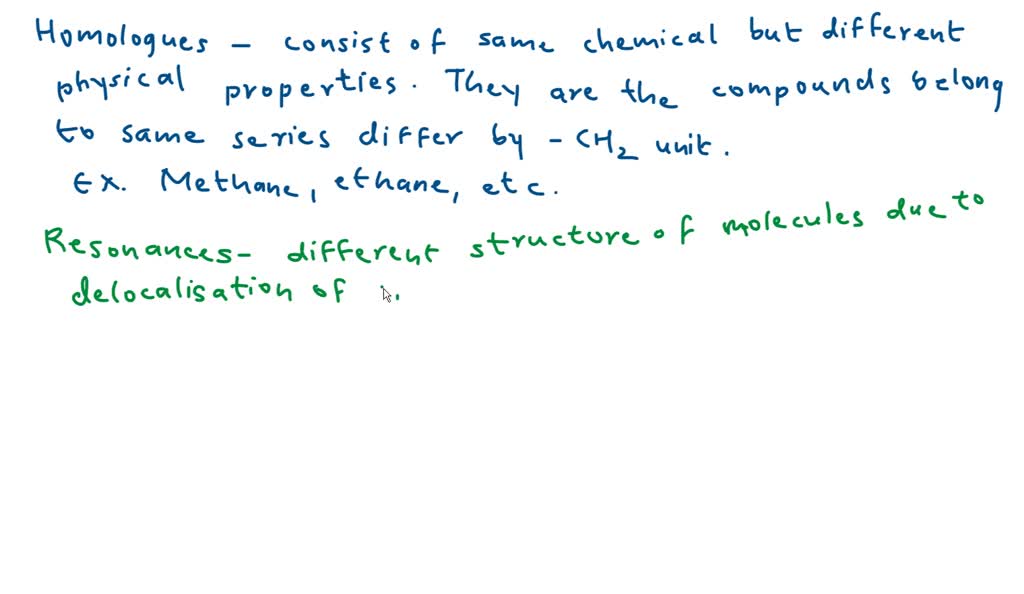 Homologues - consist of same chemical but different
physical properties. They are the compounds belong
to same series differ by - CH2 unit.
Ex. Methane, ethane, etc.
Resonances- different structure of molecules due to
delocalisation of